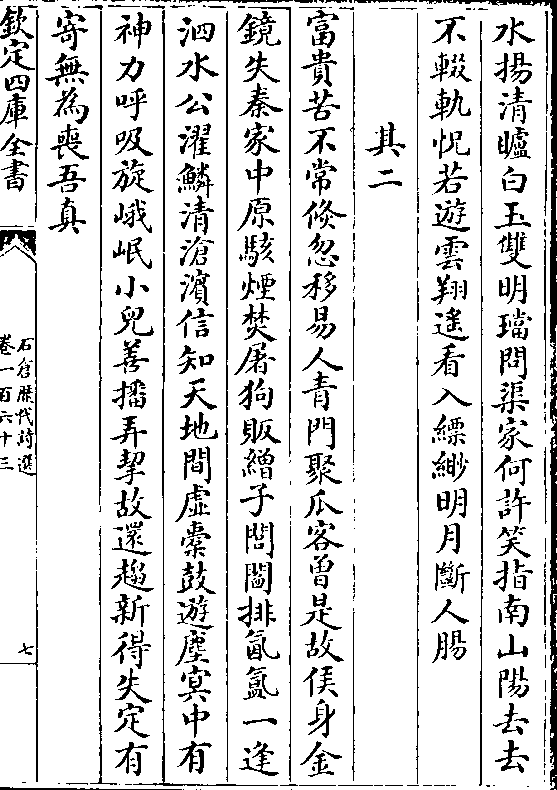 水揚清矑白玉雙明璫問渠家何許笑指南山陽去去
不輟軌怳若遊雲翔遙看入縹緲明月斷人腸
其二
富貴苦不常倐忽移易人青門聚瓜客曾是故侯身金
鏡失秦家中原駭煙焚屠狗販繒子閶闔排氤氳一逢
泗水公濯鱗清滄濱信知天地間虛橐鼓遊塵冥中有
神力呼吸旋峨岷小兒善播弄挈故還趨新得失定有
寄無為喪吾真
欽定四庫全書
石倉歴代詩選
卷一百六十三
七